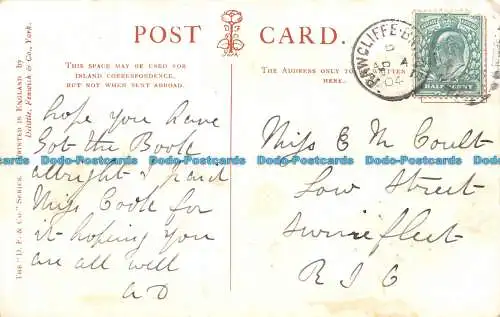 POST CARD.
THIS SPACE MAY BE USED FOR
INLAND CORRESPONDENCE,
BUT NOT WHEN SENT ABROAD.
THE ADDRESS ONLY TO
HERE.
THE "D. F. & Co." SERIES. PRINTED IN ENGLAND by
Delittle, Fenwick & Co., York.
RAWCLIFFE
AP
04
HALFPENNY
hope you have
Got the Book
allright I paid
Miss Cook for
it hoping you
are all well
A D
Miss E M Coult
Low Street
Swinefleet
R S O
Dodo-Postcards Dodo-Postcards Dodo-Postcards Dodo-Postcards
Dodo-Postcards Dodo-Postcards Dodo-Postcards Dodo-Postcards